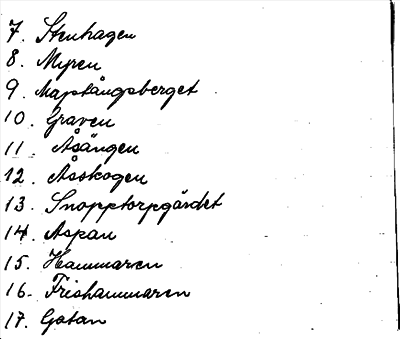 7. Stenhagen
8. Myren
9. Maptångsberget
10. Graven
11. Åsängen
12. Åsskogen
13. Snopptorpgärdet
14. Aspan
15. Hammaren
16. Frishammaren
17. Gatan